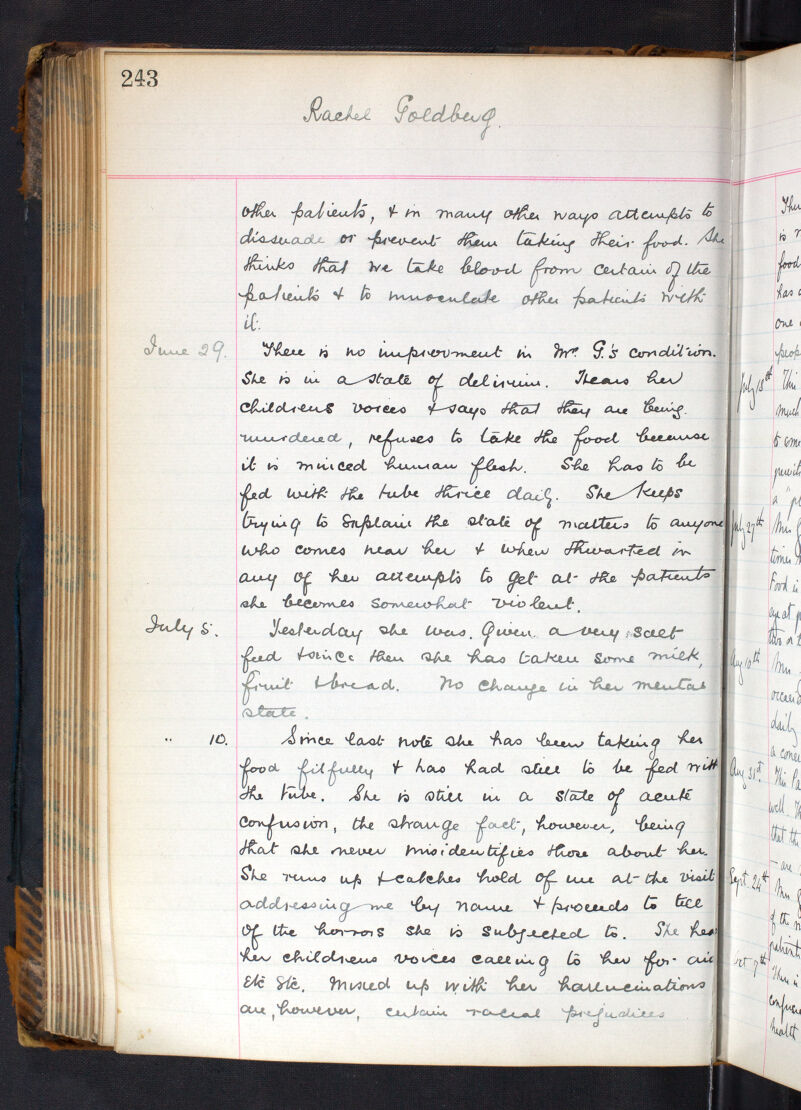 243
Rachel Goldberg.
other patients, & in many other ways attempts to
dissuade or prevent them taking their food. She
thinks that we take blood from certain of the
patients & to innoculate other patients with
it.
June 29. There is no improvment in Mrs. G.'s condition.
She is in a state of delirium. Hears her
childrens voices & says that they are being
murdered, refuses to take the food because
it is minced human flesh. She has to be
fed with the tube thrice daily. She keeps
trying to explain the state of matters to anyone
who comes near her & when thwarted in
any of her attempts to get at the patients
she becomes somewhat violent.
July 5. Yesterday she was given a very salt
feed & since then she has taken some milk,
fruit & bread. No change in her mental
state.
" 10. Since last note she has been taking her
food fitfully & has had still to be fed with
the tube. She is still in a state of acute
confusion, the strange fact, however, being
that she never misidentifies those about her.
She runs up & catches hold of me at the visit
addressing me by name & proceeds to tell
of the horrors she is subjected to. She hears
her childrens voices calling to her for aid
etc etc. Mixed up with her hallucinations
are, however, certain racial prejudices
July 18th
July 27th
Aug 10th
Aug 31st.
Sept. 24th